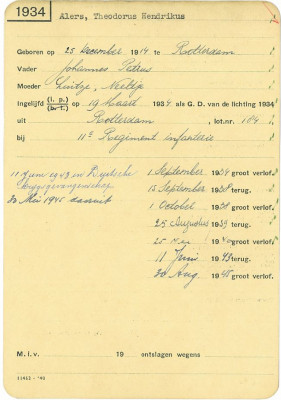 1934 Alers, Theodorus Hendrikus
Geboren op 25 December 1914 te Rotterdam
Vader Johannes Petrus
Moeder Lintze, Neeltje
Ingelijfd (i. p.) (b.t.) op 19 Maart 1934 als G. D. van de lichting 1934
uit Rotterdam , lot.nr: 184
bij 11e Regiment infanterie
1 September 1934 groot verlof.
11 Juni 1943 in Duitsche 15 September 1938 terug.
krijgsgevangenschap
30 Mei 1945 daaruit 1 October 1938 groot verlof.
25 Augustus 1939 terug.
25 Mei 1940 groot verlof.
11 Juni 1943 terug.
30 Aug. 1945 groot verlof.
M.i.v. 19 ontslagen wegens